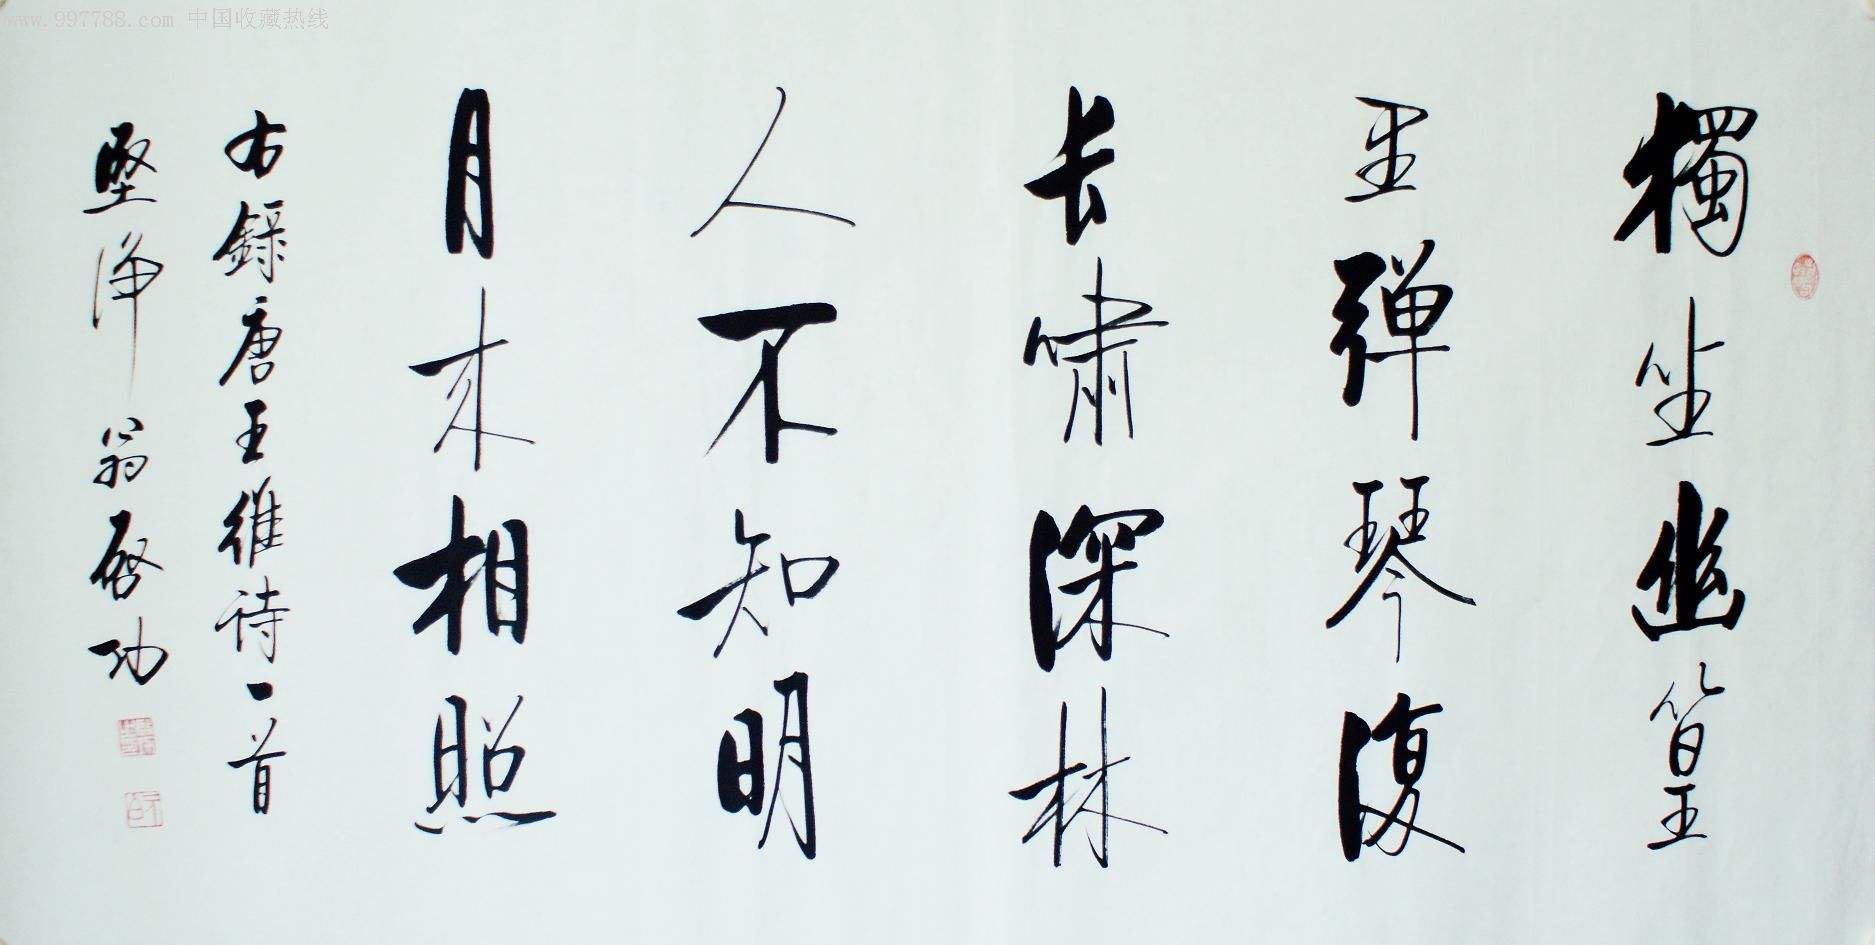 www.997788.com 中国收藏热线
獨坐幽篁
里弹琴復
长嘯深林
人不知明
月来相照
右録唐王維诗一首
堅净翁启功